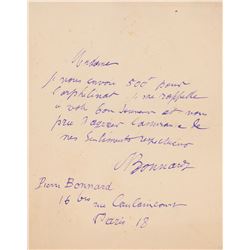 Madame
je vous envoie 500f pour
l'orphelinat je me rappelle
à votre bon souvenir et vous
prie d'agréer l'assurance de
mes sentiments respectueux
Bonnard
Pierre Bonnard
16 bis rue Caulaincourt
Paris 18